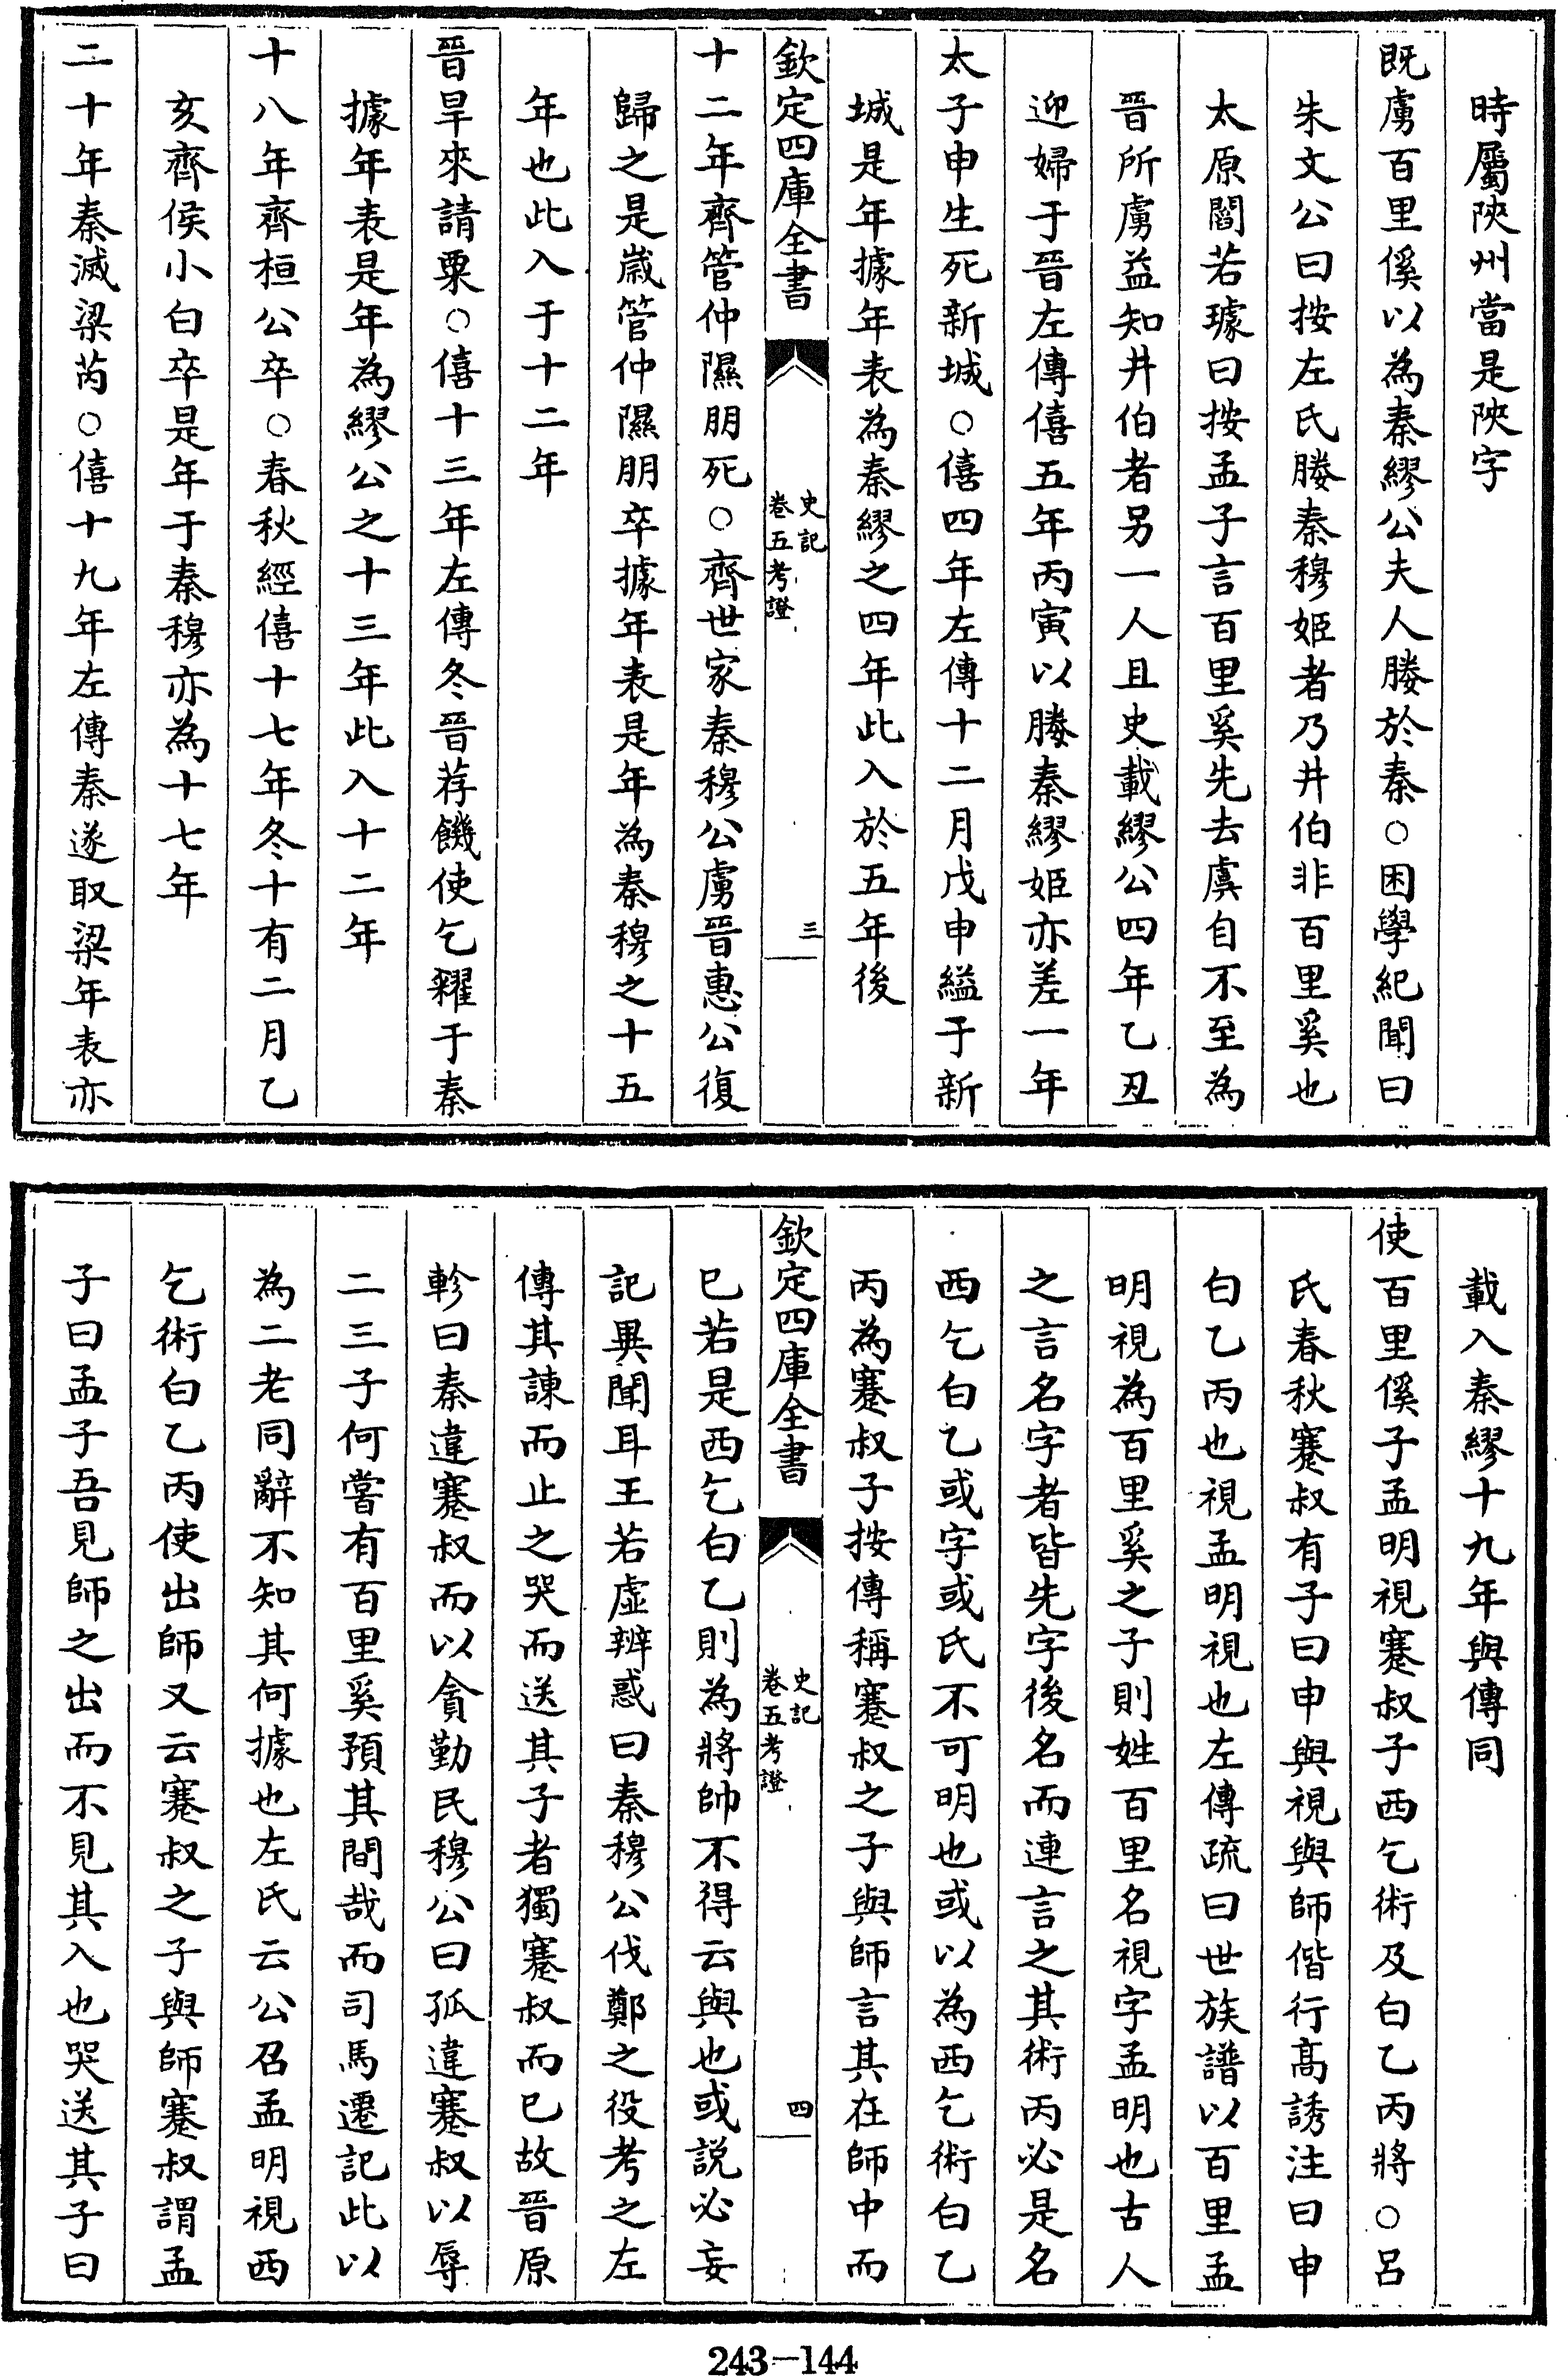 時屬陜州當是陜字
既虜百里傒以為秦繆公夫人媵於秦○困學紀聞曰
朱文公曰按左氏媵秦穆姬者乃井伯非百里奚也
太原閻若璩曰按孟子言百里奚先去虞自不至為
晉所虜益知井伯者另一人且史載繆公四年乙丑
迎婦于晉左傳僖五年丙寅以媵秦繆姬亦差一年
太子申生死新城○僖四年左傳十二月戊申縊于新
城是年據年表為秦繆之四年此入於五年後
欽定四庫全書
史記
卷五考證
三
十二年齊管仲隰朋死○齊世家秦穆公虜晉惠公復
歸之是嵗管仲隰朋卒據年表是年為秦穆之十五
年也此入于十二年
晉旱來請粟○僖十三年左傳冬晉荐饑使乞糴于秦
據年表是年為繆公之十三年此入十二年
十八年齊桓公卒○春秋經僖十七年冬十有二月乙
亥齊侯小白卒是年于秦穆亦為十七年
二十年秦滅梁芮○僖十九年左傳秦遂取梁年表亦
載入秦繆十九年與傳同
使百里傒子孟明視蹇叔子西乞術及白乙丙將○呂
氏春秋蹇叔有子曰申與視與師偕行髙誘注曰申
白乙丙也視孟明視也左傳疏曰世族譜以百里孟
明視為百里奚之子則姓百里名視字孟明也古人
之言名字者皆先字後名而連言之其術丙必是名
西乞白乙或字或氏不可明也或以為西乞術白乙
丙為蹇叔子按傳稱蹇叔之子與師言其在師中而
欽定四庫全書
史記
卷五考證
四
已若是西乞白乙則為將帥不得云與也或説必妄
記異聞耳王若虛辨惑曰秦穆公伐鄭之役考之左
傳其諫而止之哭而送其子者獨蹇叔而已故晉原
軫曰秦違蹇叔而以貪勤民穆公曰孤違蹇叔以辱
二三子何嘗有百里奚預其間哉而司馬遷記此以
為二老同辭不知其何據也左氏云公召孟明視西
乞術白乙丙使出師又云蹇叔之子與師蹇叔謂孟
子曰孟子吾見師之出而不見其入也哭送其子曰
243-144